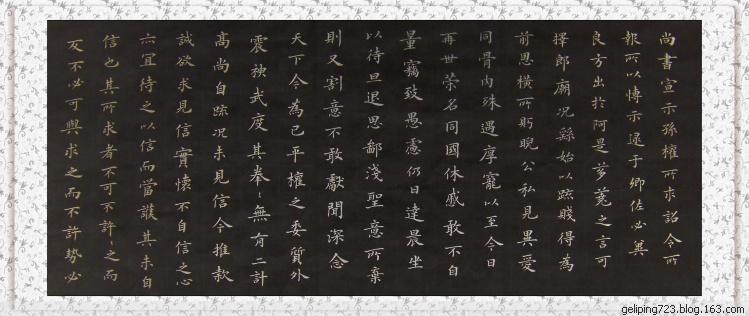 尚書宣示孫權所求詔令所
報所以博示逮于卿佐必冀
良方出於阿是芻蕘之言可
擇郎廟況繇始以疏賤得為
前恩橫所眄睨公私見異愛
同骨肉殊遇厚寵以至今日
再世榮名同國休慼敢不自
量竊致愚慮仍日達晨坐
以待旦退思鄙淺聖意所棄
則又割意不敢獻聞深念
天下今為已平權之委質外
震神武度其拳〻無有二計
高尚自疏況未見信今推款
誠欲求見信實懷不自信之心
亦宜待之以信而當護其未自
信也其所求者不可不許〻之而
反不必可與求之而不許勢必
geliping723.blog.163.com